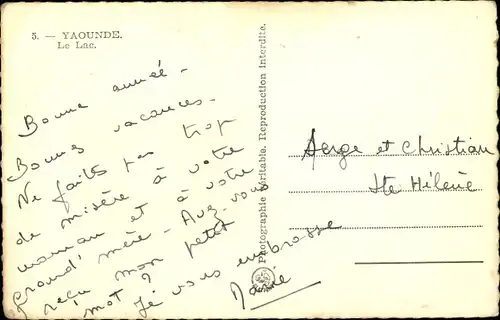 5. — YAOUNDE.
Le Lac.
Bonne année -
Bonnes vacances.
Ne faites pas trop
de misère à votre
maman et à votre
Grand' mère - Avez vous
reçu mon petit
mot ?
Je vous embrasse
Photographie Véritable. Reproduction interdite.
Serge et Christian
Ste Hélène